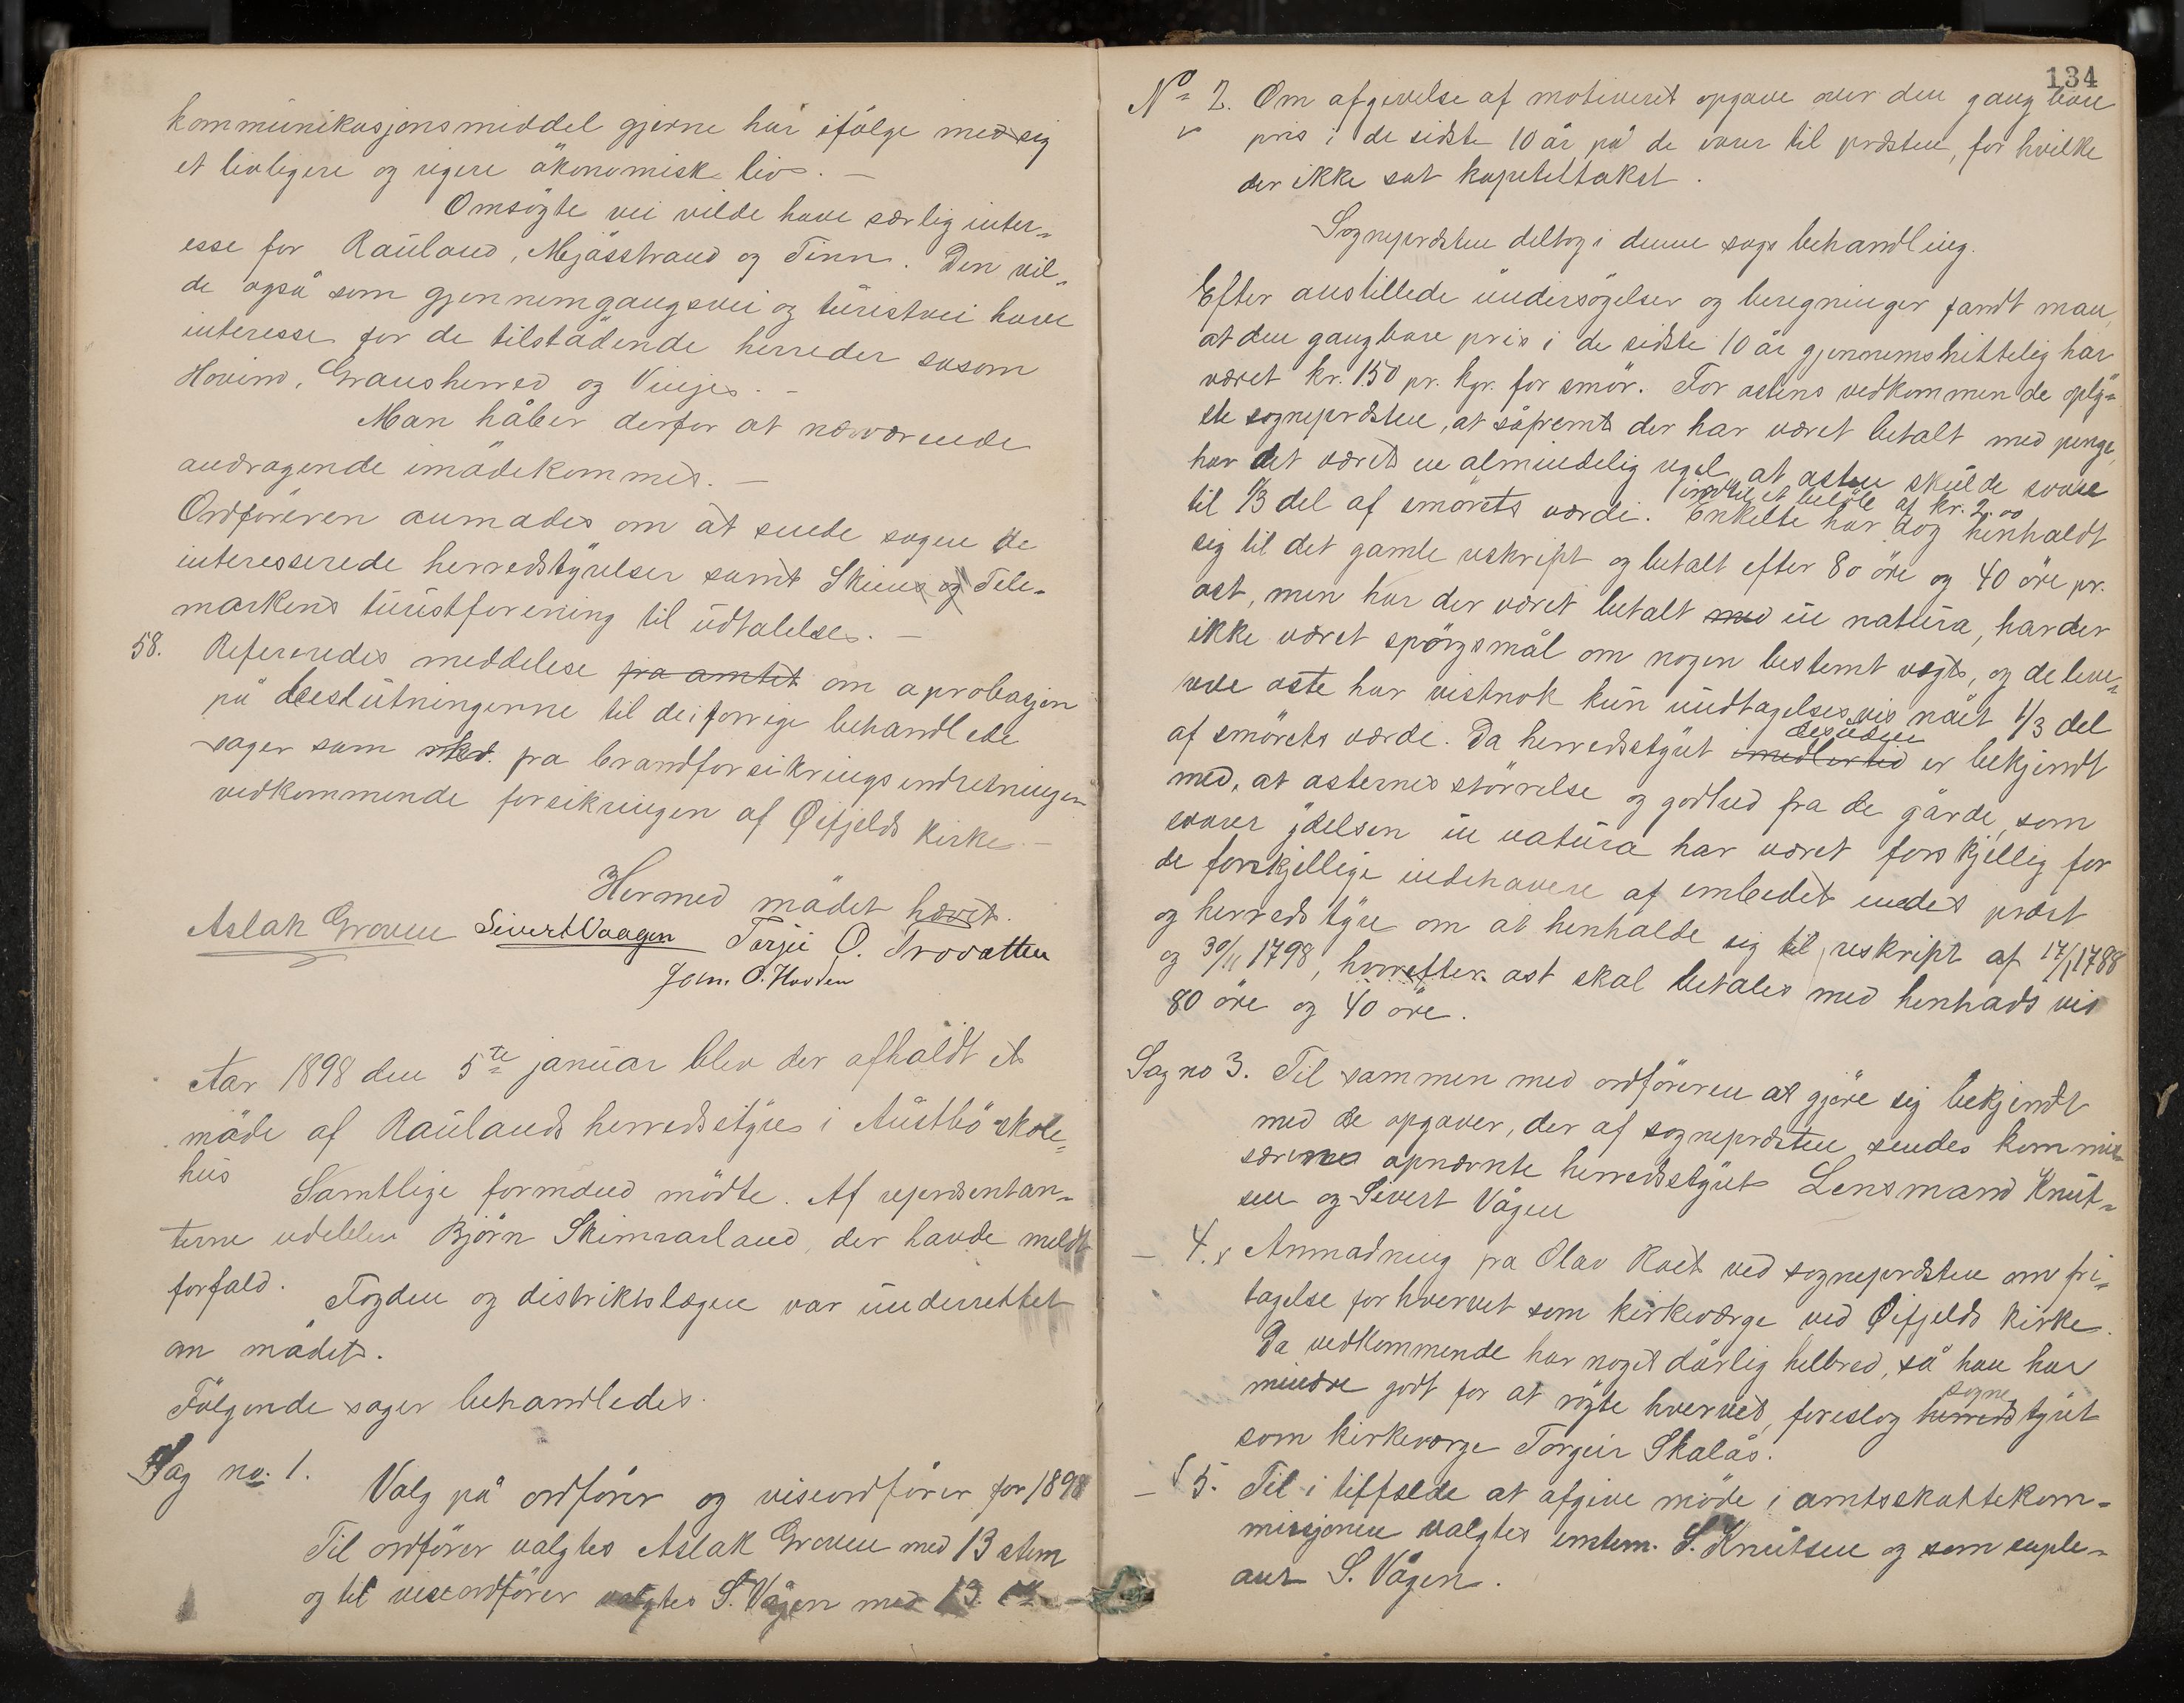 kommunikasjonsmiddel gjerne har ifølge med sig
et livligere og rigere økonomisk liv. —
Omsøgte vei vilde have særlig inter-
esse for Rauland, Mjøsstrand og Tinn. Den vil-
de også som gjennemgangsvei og turistvei have
interesse for de tilstødende herreder såsom
Hovind, Gransherred og Vinje. —
Man håber derfor at nærværende
andragende imødekommes. —
Ordføreren anmodes om at sende sagen de
interesserede herredstyrelser samt Skiens og Tele-
markens turistforening til udtalelse. —
58. Refereredes meddelese fra amtet om aprobasjon
på beslutningerne til de i forrige behandlede
sager som fra brandforsikringsindretningen
vedkommende forsikringen af Øifjelds kirke. —
Hermed mødet hævet.
Aslak Groven Sivert Vaagen Torjei O. Trovatten
John O. Hovden
Aar 1898 den 5te januar blev der afholdt et
møde af Raulands herredsstyre i Austbø skole-
hus
Samtlige formænd mødte. Af repræsentan-
terne udeblev Bjørn Skinnarland, der havde meldt
forfald. Fogden og distriktslægen var underrettet
om mødet.
Følgende sager behandledes.
Sag no. 1.
Valg på ordfører og viseordfører for 1898
Til ordfører valgtes Aslak Groven med 13 stem
og til viseordfører valgtes S. Vågen med 13
134
No 2. Om afgivelse af motiveret opgave over den gangbare
pris i de sidste 10 år på de varer til præsten, for hvilke
der ikke sat kapiteltakst.
Sognepræsten deltog i denne sags behandling.
Efter anstillede undersøgelser og beregninger fandt man,
at den gangbare pris i de sidste 10 år gjennemsnittelig har
været kr. 150 pr. kgr. for smør. For ostens vedkommende oply-
ste sognepræsten, at såfremt der har været betalt med penge,
har det været en almindelig regel, at osten skulde svare
indtil et beløb af kr. 2.00
til 1/3 del af smørets værdi. Enkelte har dog henholdt
sig til det gamle reskript og betalt efter 80 øre og 40 øre pr.
ost, men har der været betalt med in natura, har der
ikke været spørgsmål om nogen bestemt vegt, og de leve-
rede oste har vistnok kun undtagelsesvis nået 1/3 del
desuden
af smørets værdi. Da herredsstyret imedlertid er bekjendt
med, at osternes størrelse og godhed fra de gårde, som
svarer ydelsen in natura har været forskjellig for
de forskjellige indehavere af embedet enedes præst
og herredsstyre om at henholde sig til reskript af 17/1 1788
og 30/11 1798, hvorefter ost skal betales med henholdsvis
80 øre og 40 øre.
Sag no 3. Til sammen med ordføreren at gjøre sig bekjendt
med de opgaver, der af sognepræsten sendes kommis-
særerne opnævnte herredsstyret Lensmand Knut-
sen og Sivert Vågen
— 4. Anmodning fra Olav Roet ved sognepræsten om fri-
tagelse for hvervet som kirkeværge ved Øifjelds kirke.
Da vedkommende har noget dårlig helbred, så han har
mindre godt for at røgte hvervet, foreslog herredsstyret
sogne
som kirkeværge Torgeir Skalås.
— 5. Til i tilfælde at afgive møde i amtsskattekom-
missjonen valgtes enstem. S. Knutsen og som suple-
ant S. Vågen.